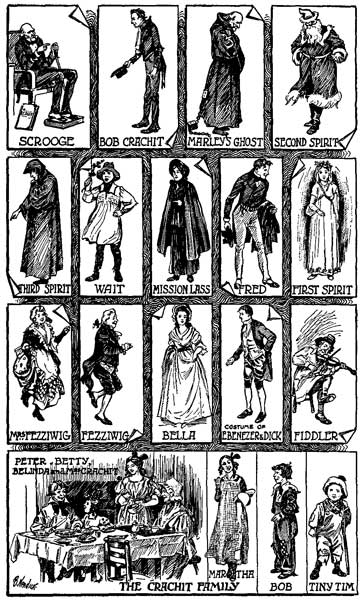 SCROOGE
BOB CRACHIT
MARLEY'S GHOST
SECOND SPIRIT
THIRD SPIRIT
WAIT
MISSION LASS
FRED
FIRST SPIRIT
MRS FEZZIWIG
FEZZIWIG
BELLA
COSTUME OF
EBENEZER & DICK
FIDDLER
PETER, BETTY,
BELINDA AND MRS CRACHIT
THE CRACHIT FAMILY
MARTHA
BOB
TINY TIM